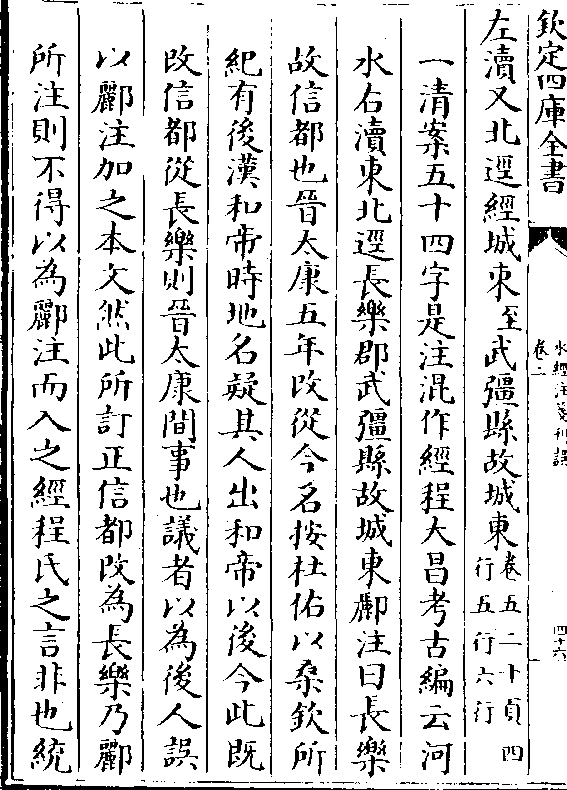 欽定四庫全書
水經注箋刊誤
卷二
四十六
左瀆又北逕經城東至武彊縣故城東卷五二十頁四行五行六行
一清案五十四字是注混作經程大昌考古編云河
水右瀆東北逕長樂郡武彊縣故城東酈注曰長樂
故信都也晉太康五年改從今名按杜佑以桑欽所
紀有後漢和帝時地名疑其人出和帝以後今此既
改信都從長樂則晉太康間事也議者以為後人誤
以酈注加之本文然此所訂正信都改為長樂乃酈
所注則不得以為酈注而入之經程氏之言非也統